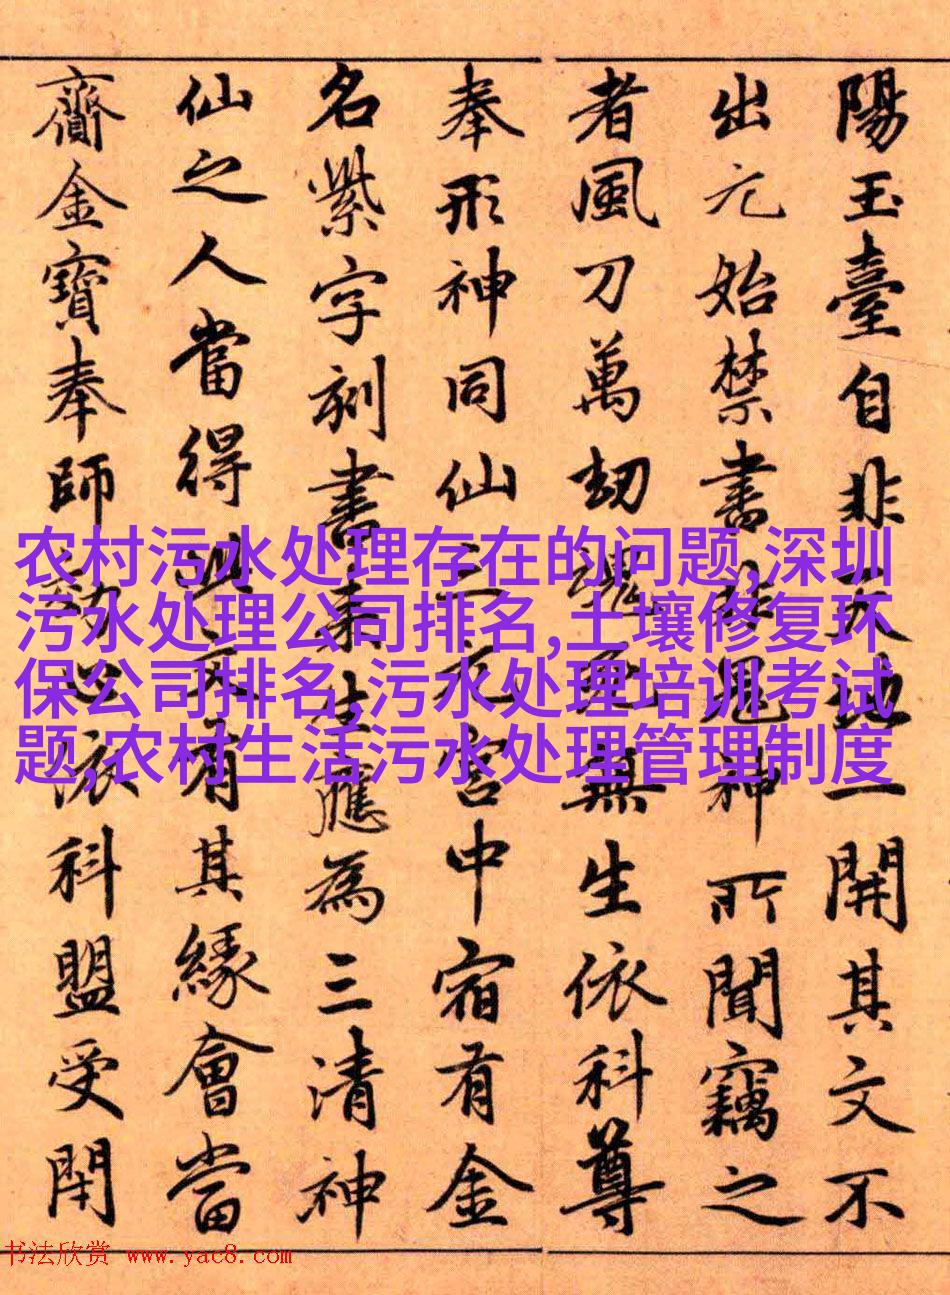 陽玉臺自非天地一開其文不
出元始禁書非鬼神所聞竊之
者風刀萬劫魂死無生依科尊
奉形神同仙三元宮中宿有金
名紫字刻書来生應為三清神
仙之人當得此文有其緣會當
齎金寶奉師効心依科盟受閇
农村污水处理存在的问题,深圳
污水处理公司排名,土壤修复环
保公司排名,污水处理培训考试
题,农村生活污水处理管理制度
书法欣赏 www.yac8.com